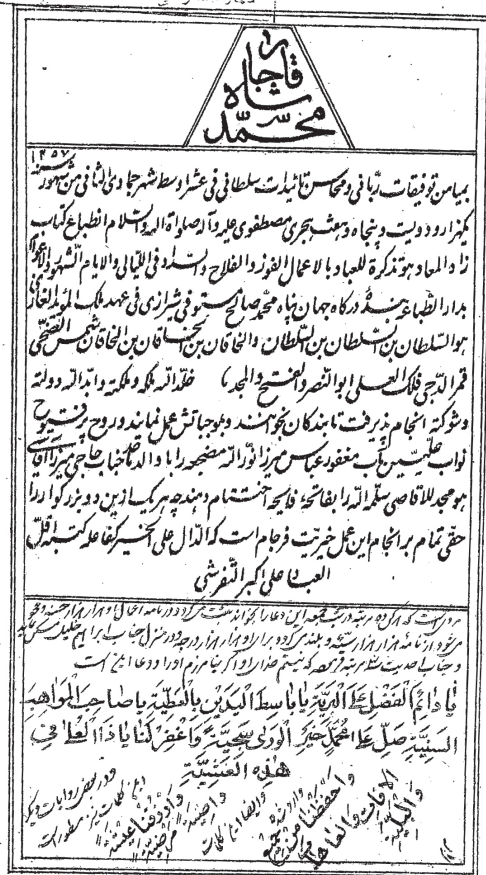 محمد شاه قاجار
بمیامن توفیقات ربانی و محاسن تائیدات سلطانی فی عشر اوسط شهر جمادی الثانی من شهور سنه ۱۲۵۷
یکهزار و دویست و پنجاه و هفت هجری مصطفوی علیه و آله صلواة الله والسلام انطباع کتاب
زاد المعاد هو تذکرة للعباد بالاعمال الفوز و الفلاح والسداد فی اللیالی والایام الشهور والاعوام
بدار الطباعه بنده درکاه جهان پناه محمد صالح مستوفی شیرازی فی عهد ملک المؤید الغازی
هو السلطان بن السلطان بن السلطان والخاقان بن الخاقان بن الخاقان شمس الضحی
قمر الدجی فلک العلی ابوالنصر والفتح والمجد خلد الله ملکه و ملکته و ابد الله دولته
و شوکته انجام پذیرفت تا بندکان بخوانند و بموجباتش عمل نمایند و روح پرفتوح
نواب علیین مآب مغفور عباس میرزا نور الله مضجعه را با والد جناب حاجی میرزا آقاسی
هو مجد للاقاصی سلمه الله را بفاتحه فایحه اختتام دهند چه هر یک ازین دو بزرکوار را
حقی تمام بر انجام این عمل خیریت فرجام است که الدال علی الخیر کفاعله کتبه اقل
العباد علی اکبر التفرشی
مرویست که هرکه ده مرتبه در شب جمعه این دعا را بخواند
یا دائم الفضل علی البریة یا باسط الیدین بالعطیة یا صاحب المواهب
السنیة صل علی محمد خیر الوری سجیة واغفر لنا یا ذا العلی فی
هذه العشیة
و در بعض روایات دیگر
این کلمات نیز مسطور است
واحفظنا من جمیع
الافات والعاهات
والبلیة